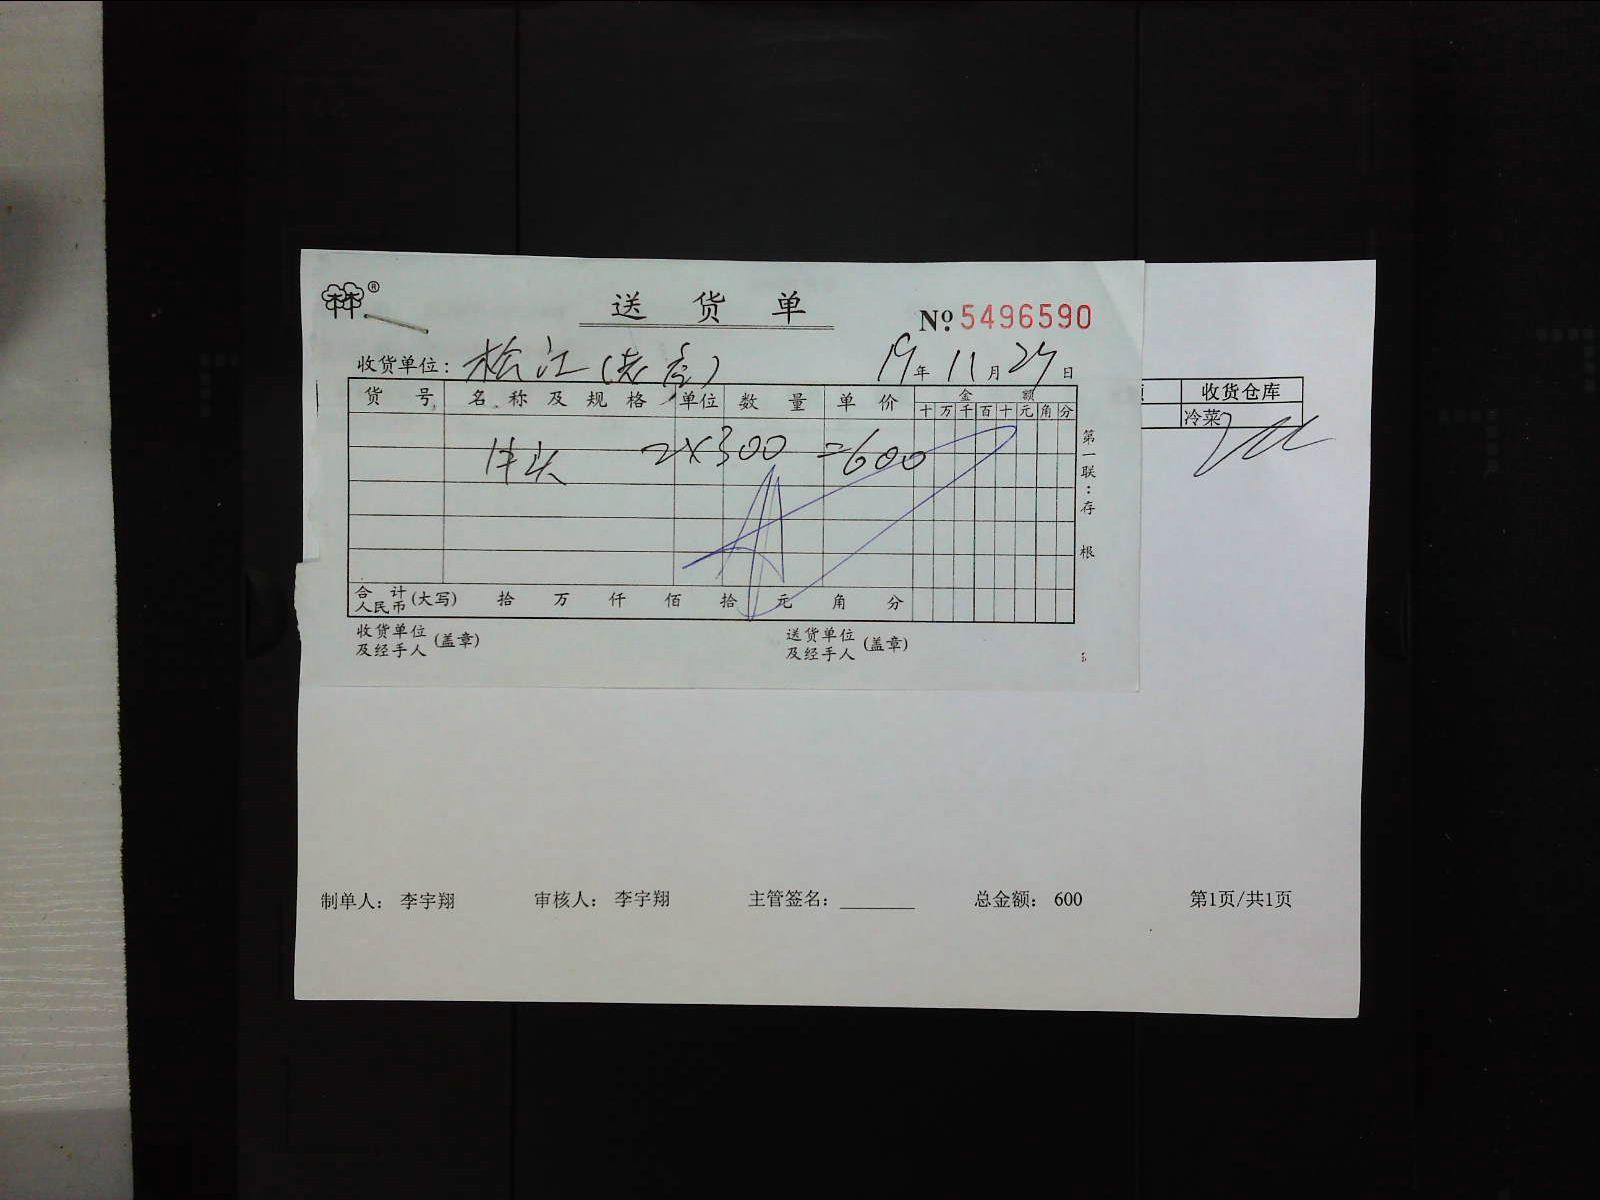 林林®
送货单
№ 5496590
收货单位: 松江(
19年11月27日
货号 名称及规格 单位 数量 单价 金额
十万千百十元角分
收货仓库
冷菜
牛头 2×300 =600
第一联:存根
合计人民币(大写) 拾 万 仟 佰 拾 元 角 分
收货单位及经手人(盖章) 送货单位及经手人(盖章)
制单人: 李宇翔 审核人: 李宇翔 主管签名: 总金额: 600 第1页/共1页